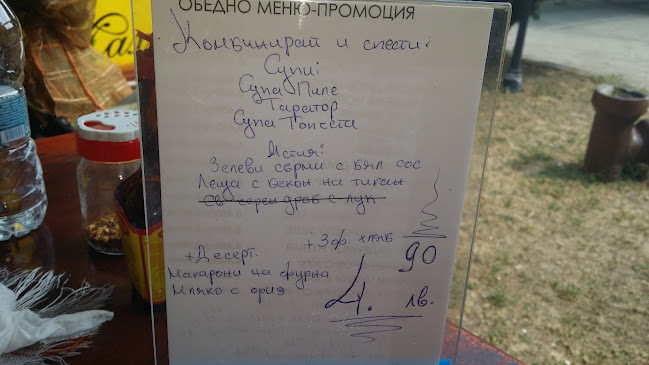 ОБЕДНО МЕНЮ-ПРОМОЦИЯ
Комбинирай и спести:
Супи:
Супа Пиле
Таратор
Супа Топчета
Ястия:
Зелеви сърми с бял сос
Леща с бекон на тиган
Св черен дроб с лук
+ 3 ф. хляб
+Десерт.
Макарони на фурна
Мляко с ориз
4. 90 лв.